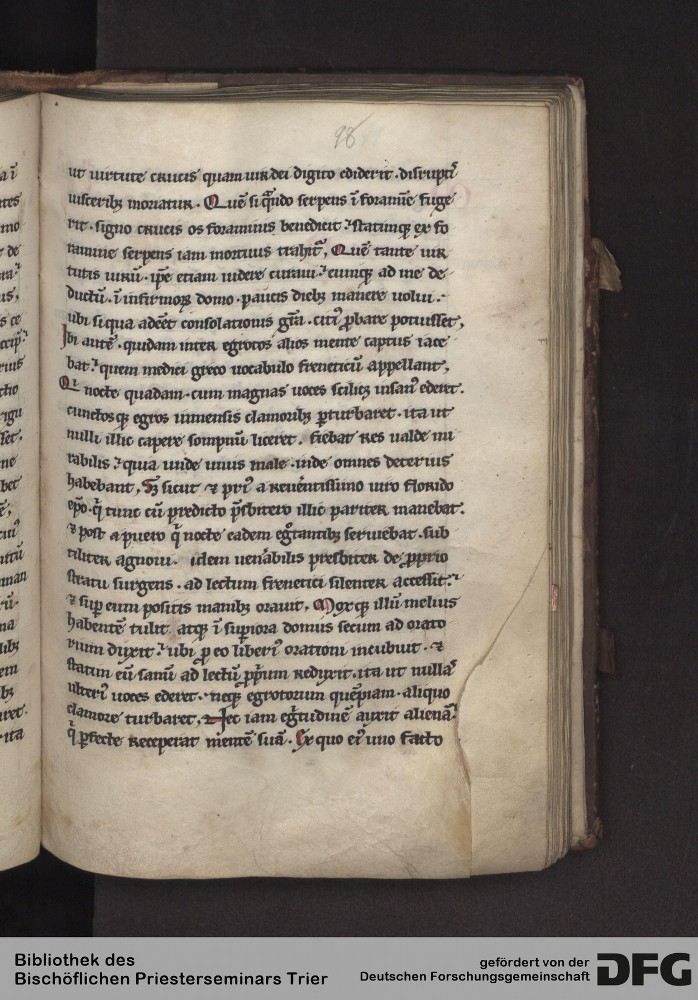 98
ut uirtute crucis quam uir dei digito ediderit · disruptꝭ
uisceribꝫ moriatur · Quē si qͣndo serpens ī foramīe fuge
rit · signo crucis os foraminis benedicit : statimqꝫ ex fo
ramine serpens iam mortuus trahit᷑, Quē tante uir
tutis uirū · ip̄e etiam uidere curaui : eumqꝫ ad me de
ductū · ī infirmoꝝ domo · paucis diebꝫ manere uolui ·
ubi si qua adeēt consolationis gr̄a · citiꝰ ꝓbare potuisset,
Ibi autē · quidam inter egrotos alios mente captus iace
bat : quem medici greco uocabulo freneticū appellant,
Qi nocte quadam · cum magnas uoces scilicꝫ insanꝰ ederet ·
cunctosqꝫ egros inmensis clamoribꝫ ꝑturbaret · ita ut
nulli illic capere sompnū liceret · fiebat res ualde mi
rabilis : quia unde unus male · inde omnes deterius
habebant, Sꝫ sicut ⁊ priꝰ a reuerētissimo uiro florido
ep̄o · q̇ tunc cū predicto p̄sbitero illic pariter manebat ·
⁊ post a puero q̇ nocte eadem eg̊tantibꝫ seruiebat · sub
tiliter agnoui · idem uen̄abilis presbiter de ꝓprio
stratu surgens · ad lectum frenetici silenter accessit :
⁊ suꝑ eum positis manibꝫ orauit, Moxqꝫ illū melius
habentē tulit atqꝫ ī suꝑiora domus secum ad orato
rium duxit : ubi ꝓ eo liberiꝰ orationi incubuit · ⁊
statim eū sanū ad lectū ꝓpriū reduxit · ita ut nullaꝰ
ulteriꝰ uoces ederet · neqꝫ egrotorum quēpiam · aliquo
clamore turbaret, Nec iam eg̊tudinē auxit alienā :
q̇ ꝑfecte receperat mentē suā · Ex quo eiꝰ uno facto
Bibliothek des
Bischöflichen Priesterseminars Trier
gefördert von der
Deutschen Forschungsgemeinschaft
DFG